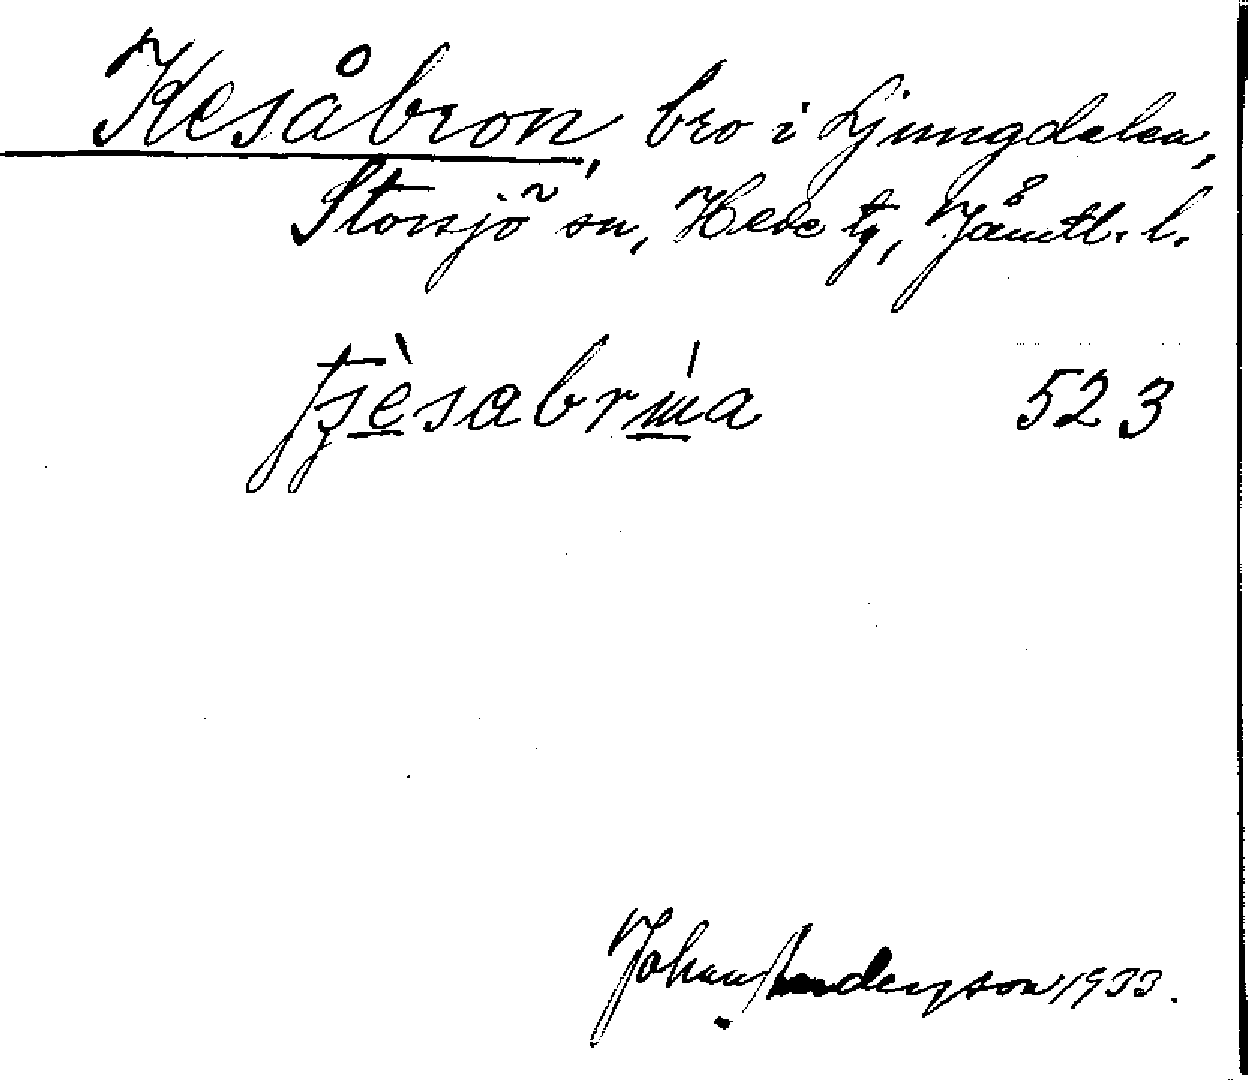 Kesåbron, bro i Ljungdalen,
Storsjö sn, Hede tg, Jämtl. l.
523
Johan Anderson 1933.